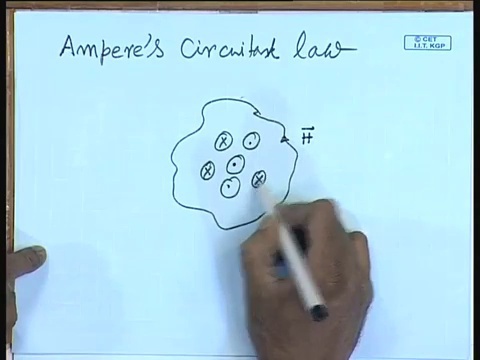 Ampere's Circuital law
© CET
I.I.T. KGP
H
x
x
x